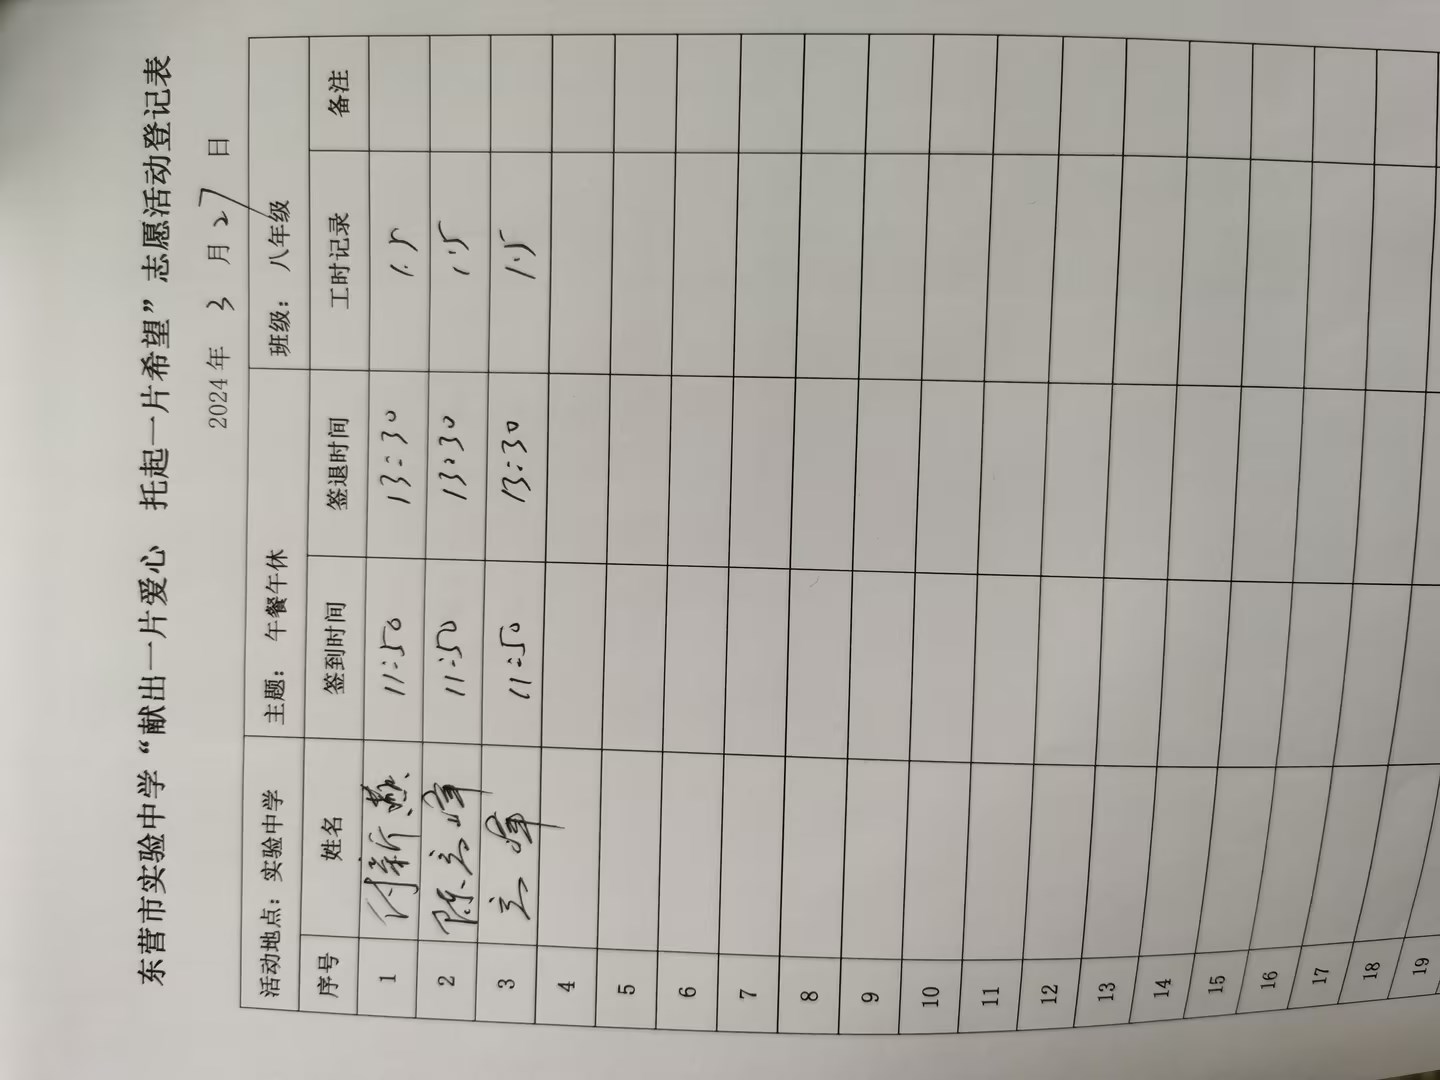 东营市实验中学“献出一片爱心 托起一片希望”志愿活动登记表
2024年 3 月 27 日
活动地点：实验中学 主题：午餐午休 班级：八年级
序号 姓名 签到时间 签退时间 工时记录 备注
1 付新燕 11:50 13:30 1.5
2 陈立峰 11:50 13:30 1.5
3 立峰 11:50 13:30 1.5
4
5
6
7
8
9
10
11
12
13
14
15
16
17
18
19